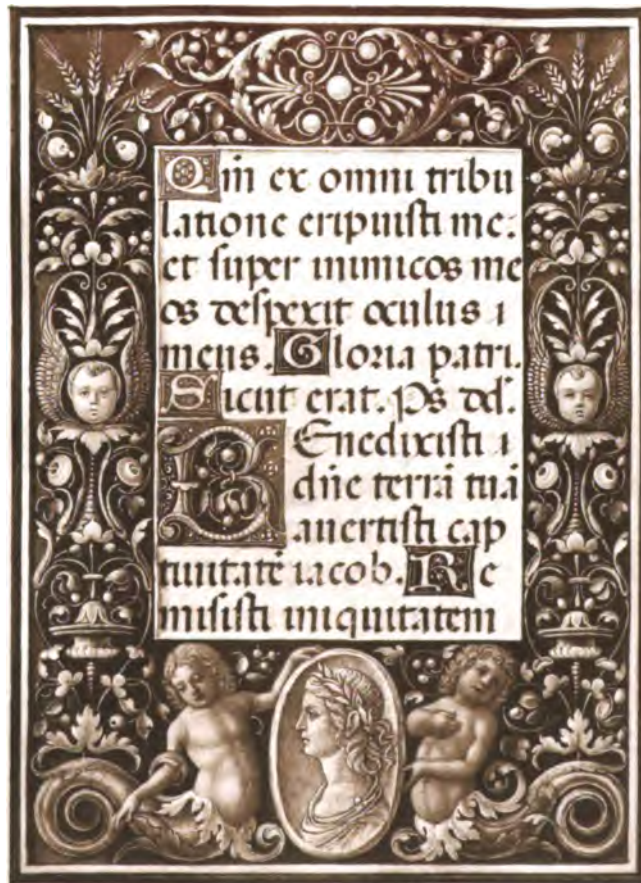 Qm̄ ex omni tribu
latione eripuisti me:
et super inimicos me
os despexit oculus i
meus. Gloria patri.
Sicut erat. Ps dd̄.
BEnedixisti i
dn̄e terrā tuā
auertisti cap
tiuitatē iacob. Re
misisti iniquitatem